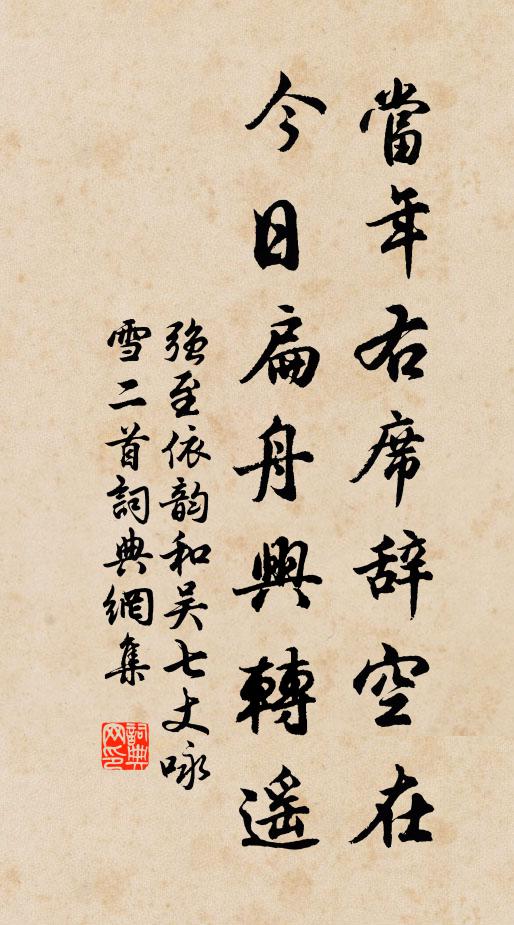 當年右席辞空在
今日扁舟興轉遥
強至依韵和吴七丈咏
雪二首詞典網集
詞典網印